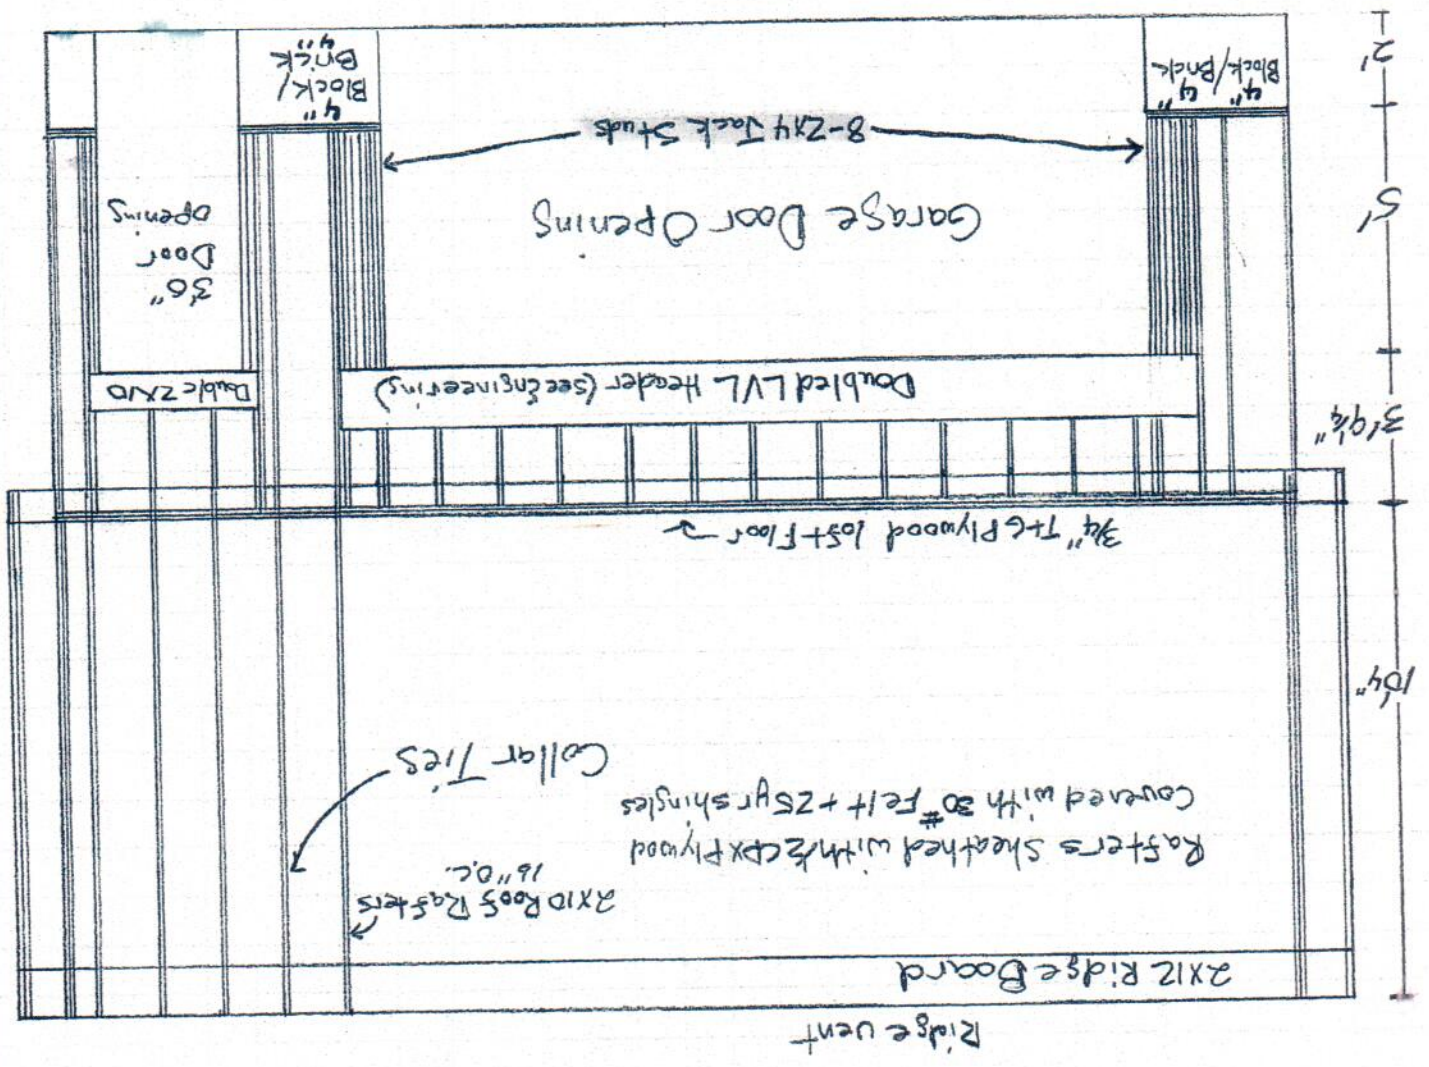 Ridge Vent
2x12 Ridge Board
2x10 Roof Rafters
16" O.C.
Rafters Sheathed with ½ CDX Plywood
Covered with 30# Felt + 25yr shingles
Collar Ties
10'4"
3/4" T+G Plywood loft Floor
3'9¼"
Doubled LVL Header (see Engineering)
Double 2x10
5'
Garage Door Opening
3'0"
Door
opening
8-2x4 Jack Studs
2'
4" 4"
Block/Brick
4"
Block/
Brick
4"